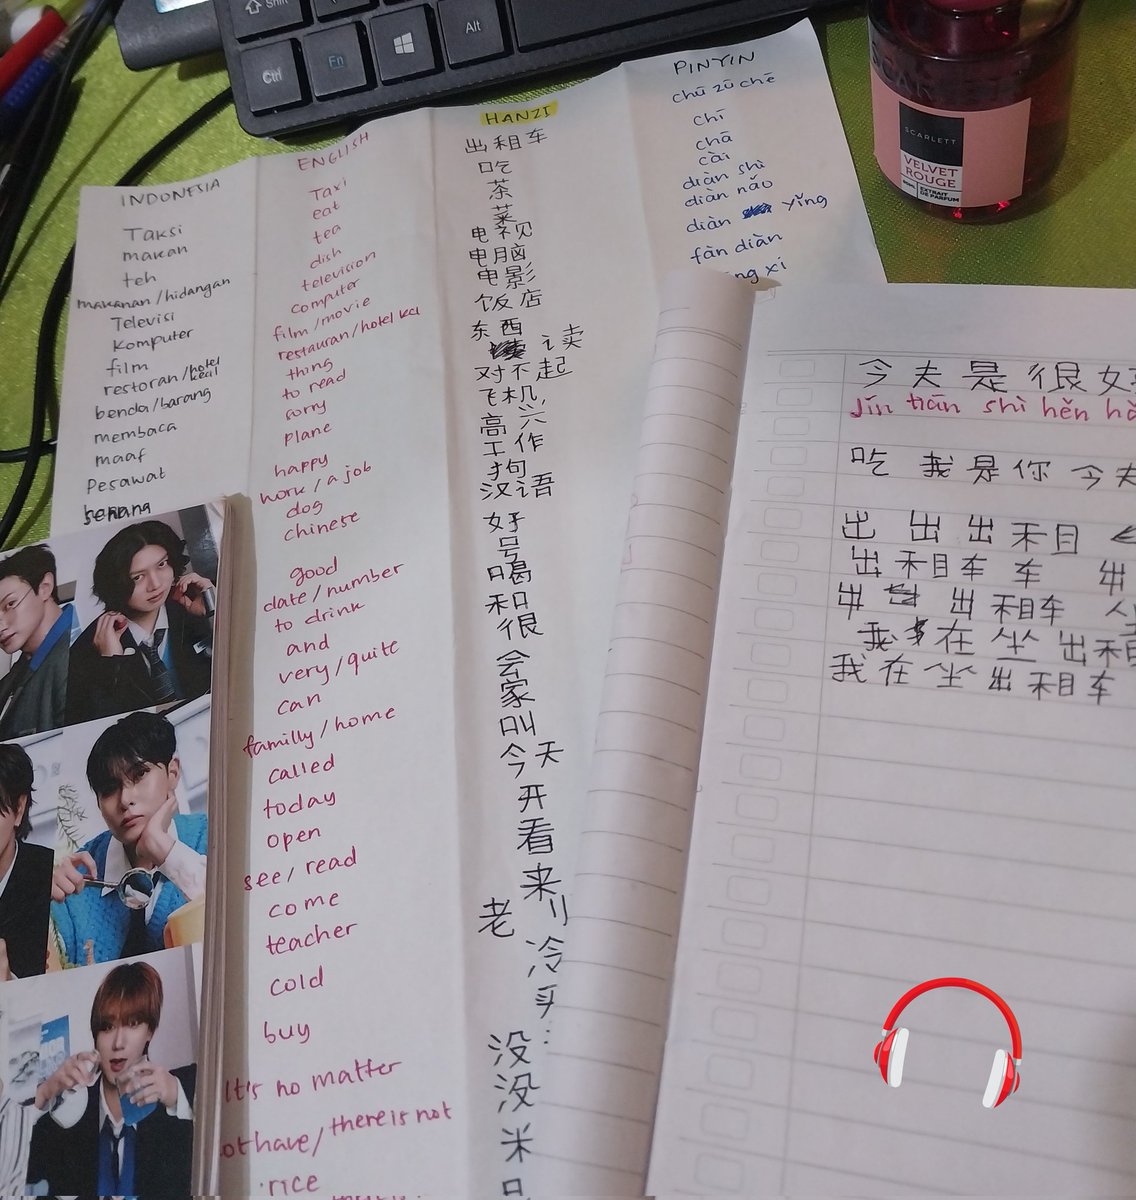 Shift
Ctrl
Fn
Alt
SCARLETT
VELVET
ROUGE
EXTRAIT
DE PARFUM
INDONESIA
Taksi
makan
teh
makanan/hidangan
Televisi
Komputer
film
restoran/hotel
kecil
benda/barang
membaca
maaf
Pesawat
senang
ENGLISH
Taxi
eat
tea
dish
television
computer
film/movie
restauran/hotel kcl
thing
to read
sorry
plane
happy
work/a job
dog
chinese
good
date/number
to drink
and
very/quite
can
familly/home
called
today
open
see/read
come
teacher
cold
buy
It's no matter
ot have/there is not
rice
HANZI
出租车
吃
茶
菜
电视
电脑
电影
饭店
东西
读
对不起
飞机
高兴
工作
狗
汉语
好
号
喝
和
很
会
家
叫
今天
开
看
来
老
冷
买
没
没
米
PINYIN
chū zū chē
chī
chā
cài
diàn shì
diàn nǎo
diàn yǐng
fàn diàn
ng xi
今夫是很好
Jīn tiān shì hěn hǎ
吃 我是你今夫
出 出 出 租
出租车 车 出
出 出租车 坐
我 在坐出租
我在坐出租车